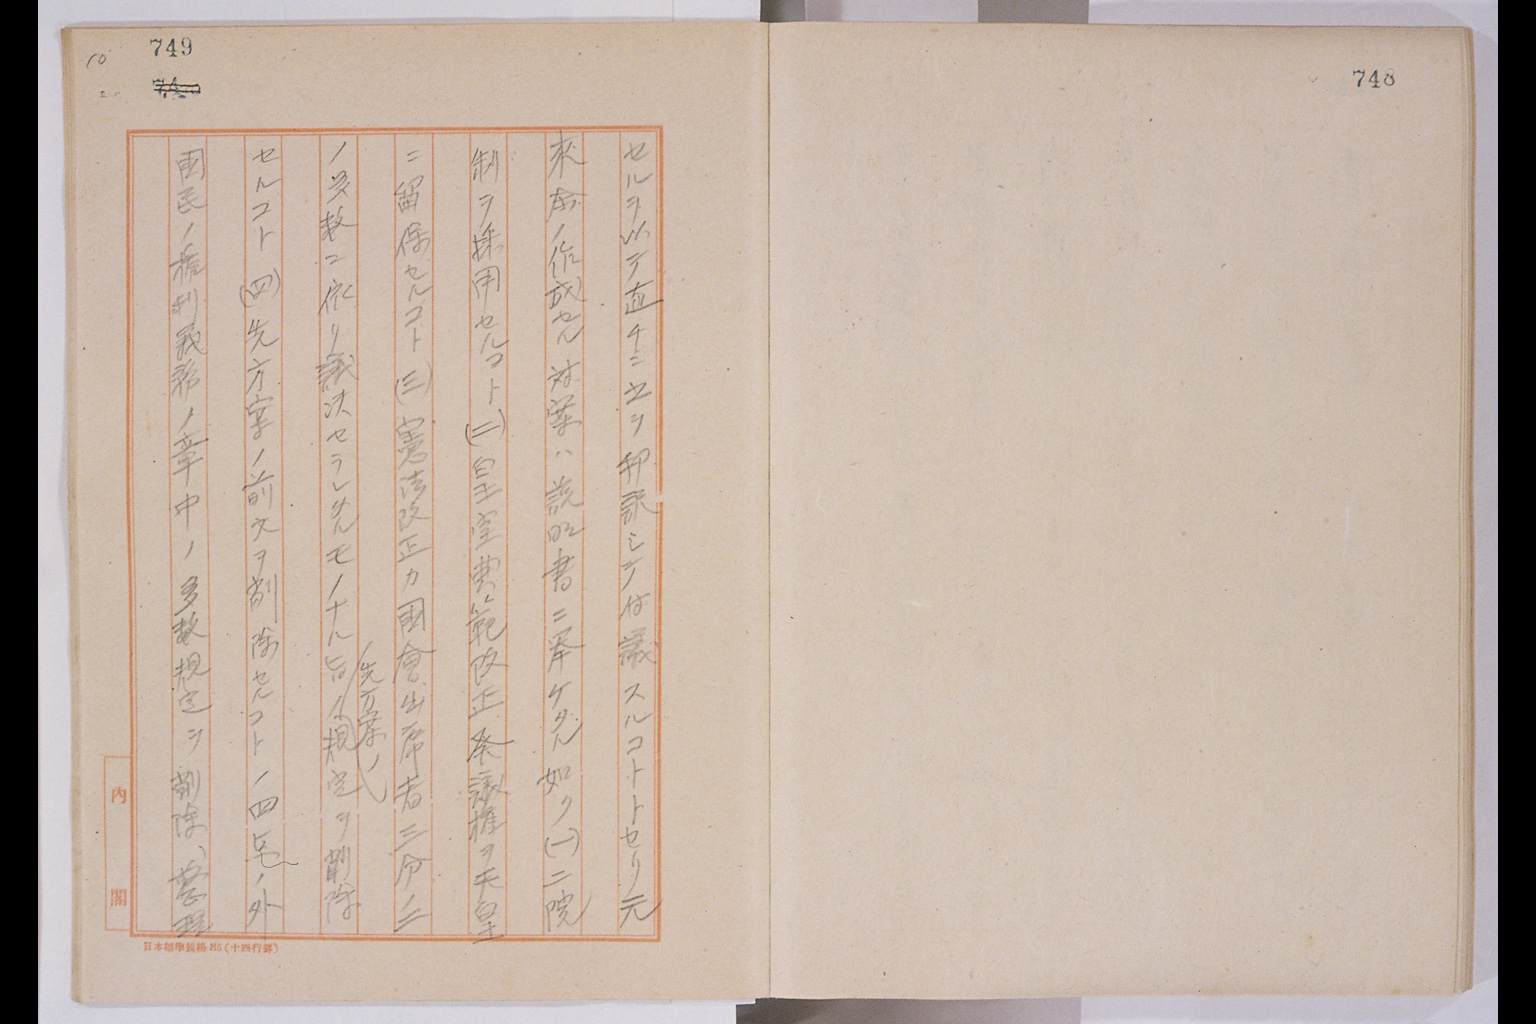 748
749
10
セルヲ以テ直チニ之ヲ邦訳シテ付議スルコトトセリ元
来本ノ作成セル対案ハ説明書ニ挙ケタル如ク(一)二院
制ヲ採用セルコト(二)皇室典範改正発議権ヲ天皇
ニ留保セルコト(三)憲法改正カ國會出席者三分ノ二
ノ多数ニ依リ議決セラレサルモノナル旨ノ規定ヲ削除
(先方案ノ)
セルコト(四)先方案ノ前文ヲ削除セルコトノ四点ノ外
國民ノ権利義務ノ章中ノ多数規定ヲ削除、整理
内閣
日本標準規格B5(十四行罫)